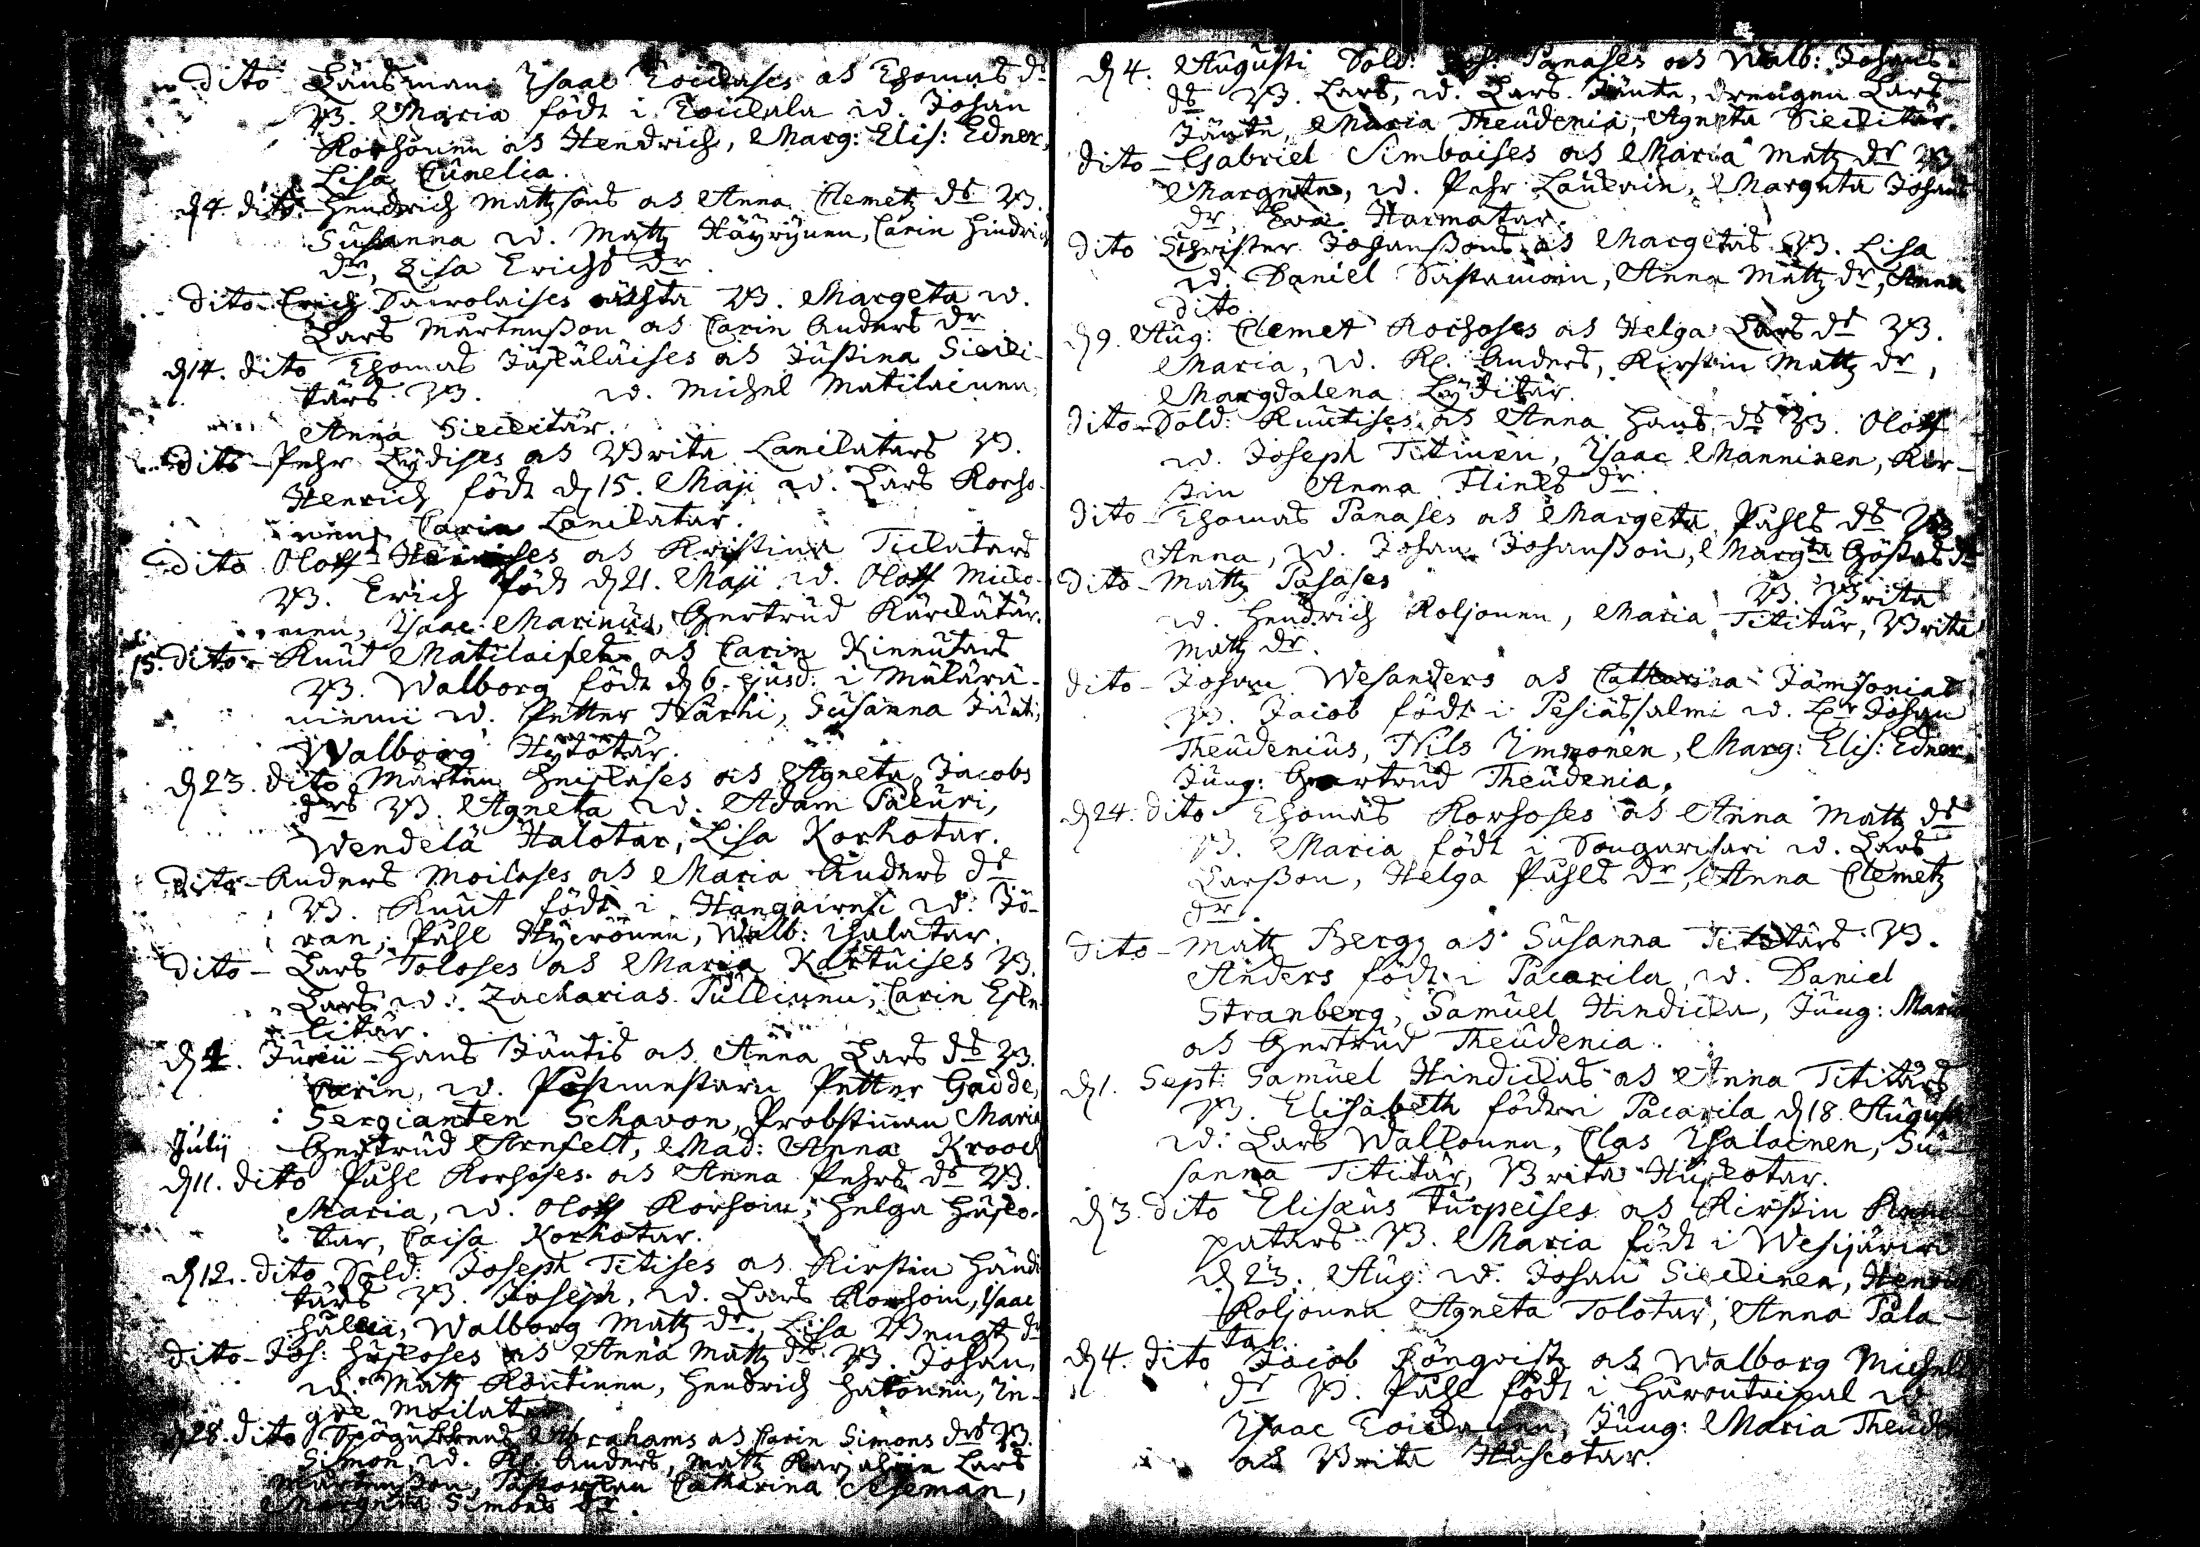 Dito Länsman Ysaac Toickases as Thomas dr
B. Maria födt i Toickala w. Johan
Korhonen as Hendrich, Marg: Elis: Edner,
Lisa Cunelia.
d 4. dito Hendrich Mattzsons as Anna Clemetz ds B.
Susanna w. Mattz Häyrynen, Carin Hindrichs
dr, Lisa Erichs dr
Dito Erich Sawolaises B. Margeta w.
Lars Mårtensson as Carin Anders dr
d 14. dito Thomas as Justina Sickitärs
B. w. Michel Matilainen
Anna Sickitär.
Dito Pehr Lydises as Brita Lanilatars B.
Henrich födt d 15. Maji w. Lars Korhonen
Carin Lanilatar.
Dito Oloff as Kristina Ticlatars
B. Erich födt d 21. Maji w. Oloff
Ysaac Marinus, Gertrud Kärckätär.
15. Dito Knut Matilaises as Carin Kinnutars
B. Walborg födt d 6. ejusd: i Mulära-
niemi w. Petter Kärhi, Susanna Jänti,
Walborg Hytötär.
d 23. dito Mårten Heiskases as Agneta Jacobs
drs B. Agneta w. Adam Pakuri,
Wendela Halotar, Lisa Korhotar.
Dito Anders Moilases as Maria Anders ds
B. Knut födt i Hangairvesi w. Jö-
ran, Påhl Hyvönen, Walb: Ihalatar.
Dito Lars Toloses as Maria Kärtuises B.
Lars w. Zacharias Pullinen, Carin
litär.
d 4. Junii Hans Jäntis as Anna Lars ds B.
Carin, w. Postmestarn Petter Gadde,
Sergianten Schavon, Probstinnan Maria
July Gertrud Arnfelt, Mad: Anna Krook
d 11. dito Påhl Korhoses as Anna Pehrs ds B.
Maria, w. Oloff Korhoin, Helga Husko-
tar, Caisa Korhotar.
d 12. dito Sold: Joseph Titises as Kirstin
tärs B. Joseph, w. Lars Korhoin, Ysaac
Walborg Mattz dr, Lisa Bengtz dr
Dito Joh: Huskoses as Anna Mattz ds B. Johan,
w. Mattz Kontinen, Hendrich Hatonen, In-
gre Moilatar
d 28. dito Abrahams as Carin Simons drs B.
Simon w. Kl: Anders, Mattz Karjalain Lars
Mårtensson, Pastorskan Catharina Aeseman,
Margreta Simons dr.
d 4. Augusti Sold: Joh: Panases as Walb: Johans
ds B. Lars, w. Lars Jänte, drengen Lars
Jänte, Maria Theudenia, Agneta Sickitär.
Dito Gabriel Simboises as Maria Matz dr B.
Margreta, w. Pehr Laukain, Margreta Johans
dr, Ewa Harmatar.
Dito Christer Johanssons as Margetas B. Lisa
w. Daniel Sastamoin, Anna Mattz dr, Anna
dito.
d 9. Aug: Clemet Korhoses as Helga Lars ds B.
Maria, w. Kl. Anders, Kirstin Mattz dr,
Margdalena Lyditär.
Dito Sold: Knutises as Anna Hans ds B. Oloff
w. Joseph Titinen, Ysaac Manninen, Kir-
stin Anna Flinks dr.
Dito Thomas Panases as Margeta Påhls ds B.
Anna, w. Johan Johansson, Margta Göstas dr
Dito Mattz Pasases B. Brita
w. Hendrich Koljonen, Maria Tititär, Brita
Mattz dr.
Dito Johan Wesanders as Catharina Jämsonias
B. Jacob födt i Pesiässalmi w. Johan
Theudenius, Nils Immonen, Marg: Elis: Edner
Jung: Gertrud Theudenia.
d 24. dito Thomas Korhoses as Anna Mattz ds
B. Maria födt i Sougarisari w. Lars
Larsson, Helga Påhls dr, Anna Clemetz
dr.
Dito Mattz Bergz as Susanna Titotärs B.
Anders födt i Pacarila, w. Daniel
Stranberg, Samuel Hindicka, Jung: Maria
as Gertrud Theudenia.
d 1. Sept: Samuel Hindickas as Anna Tititärs
B. Elisabeth födt i Pacarila d 18. August
w: Lars Walkonen, Clas Ihalainen, Su-
sanna Tititär, Brita Huskotar.
d 3. dito Elisæus Turpeises as Kirstin
patars B. Maria födt i Wesijärvi
d 23. Aug: w. Johan Sickinen, Henrich
Koljonen Agneta Tolotar, Anna Pala-
tar
d 4. dito Jacob Lönqvistz as Walborg Michels
dr B. Påhl födt i Hurrutaipal w.
Ysaac Toickanen, Jung: Maria Theudenia
as Brita Huscotar.